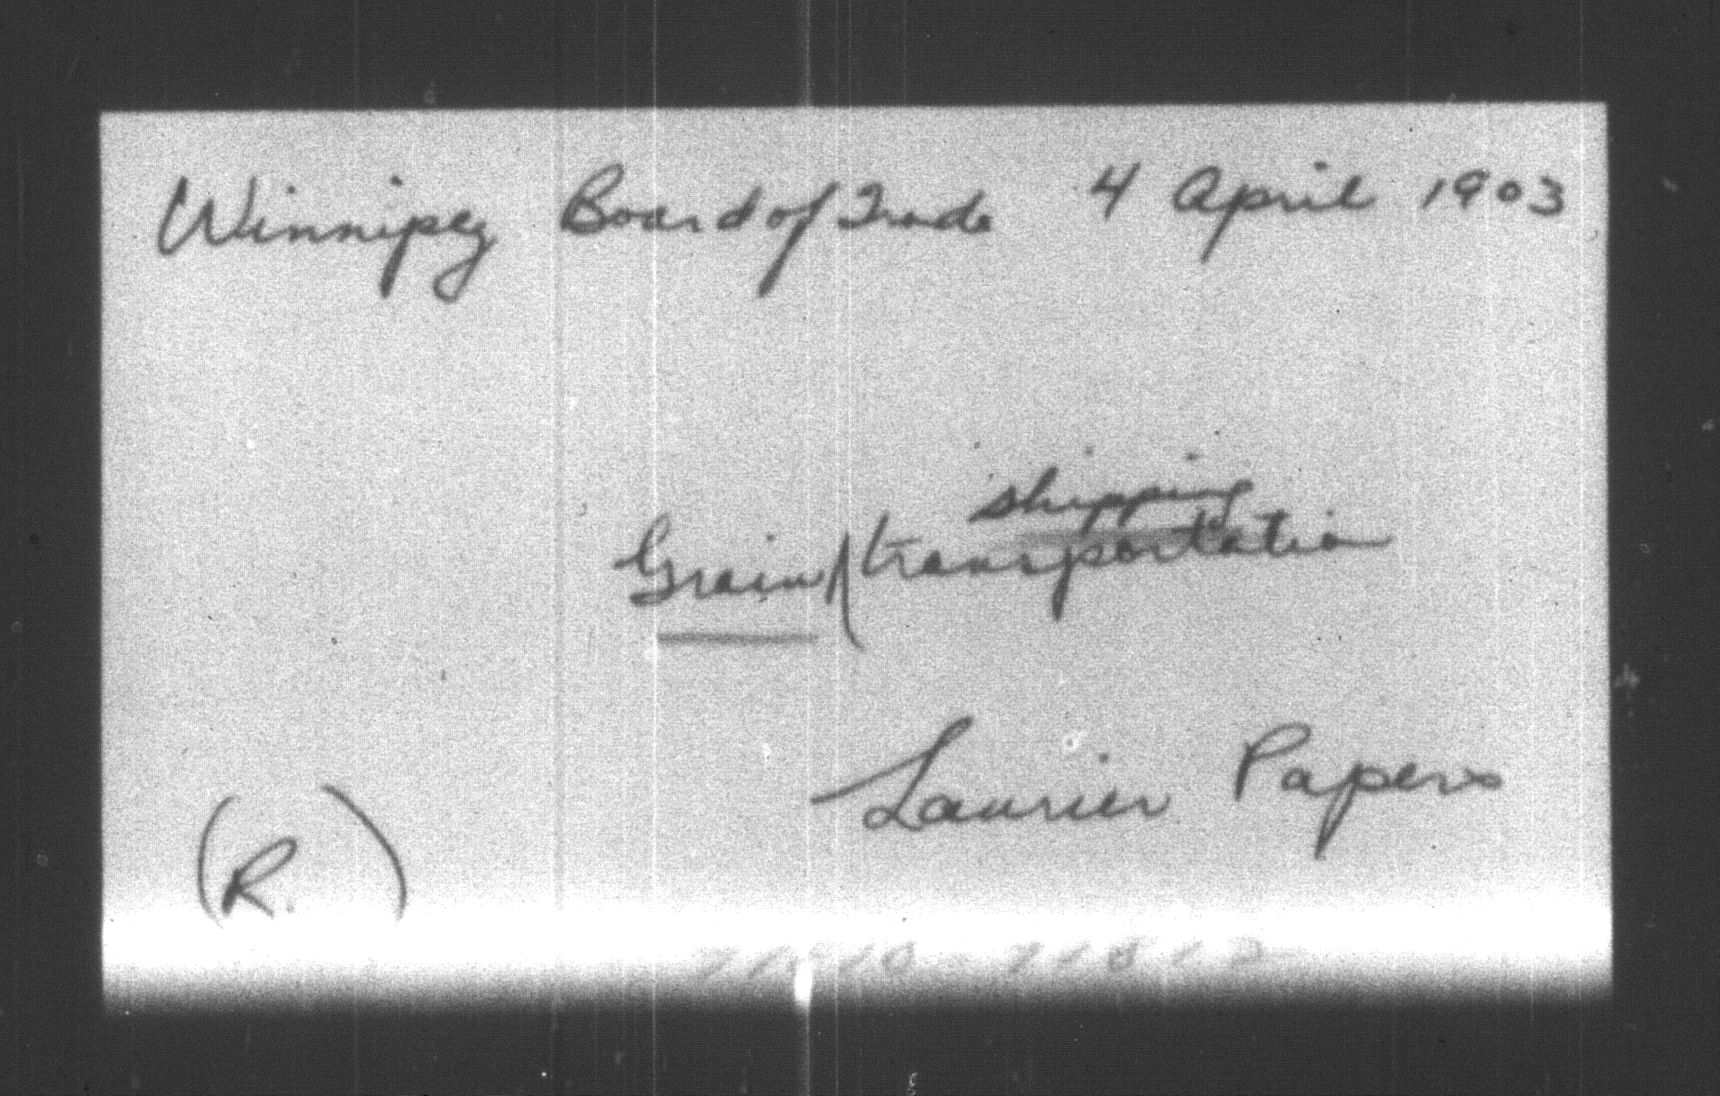 Winnipeg Board of Trade 4 April 1903
shipping
Grain (transportation
Laurier Papers
(R.)